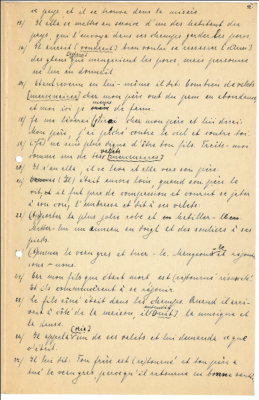 ce pays et il se trouva dans la misère.
15/ Il alla se mettre au service d'un des habitant du
pays, qui l'envoya dans ses champs garder les porcs.
16/ Il aurait (voudrait) bien voulu se
des glans que mangeaient les porcs, mais personne
ne lui en donnait.
17/ en lui-même et dit: Combien de valets
(mercenaires) chez mon père ont du pain en abondance
et moi ici je meurs de faim.
18/ Je me lèverai chez mon père et lui dirai:
Mon père, j'ai péché contre le ciel et contre toi.
19/ Je ne suis plus digne d'être ton fils. Traite-moi
comme un de tes valets (mercenaires)
20/ Il s'en alla, il se leva et alla vers son père.
était encore loin, quand son père le
vit, et il fut pris de compassion et courut se jeter
à son cou, l'embrassa et dit à ses valets:
22/ la plus jolie robe et
Mettez-lui un anneau au doigt et des souliers à ses
pieds.
23/ le veau gras et tuez-le. Mangeons et réjouis
sons-nous.
24/ Car mon fils que était mort est
Et ils commencèrent à se réjouir.
25/ Le fils aîné était dans les champs. Quand il arri-
vait à côté de la maison, il la musique et
la danse.
26/ Il appela un de ses valets et lui demanda ce que
c'était.
27/ Il lui dit: Ton frère est et ton père a
tué le veau gras, parce qu'il retourna en bonne santé.